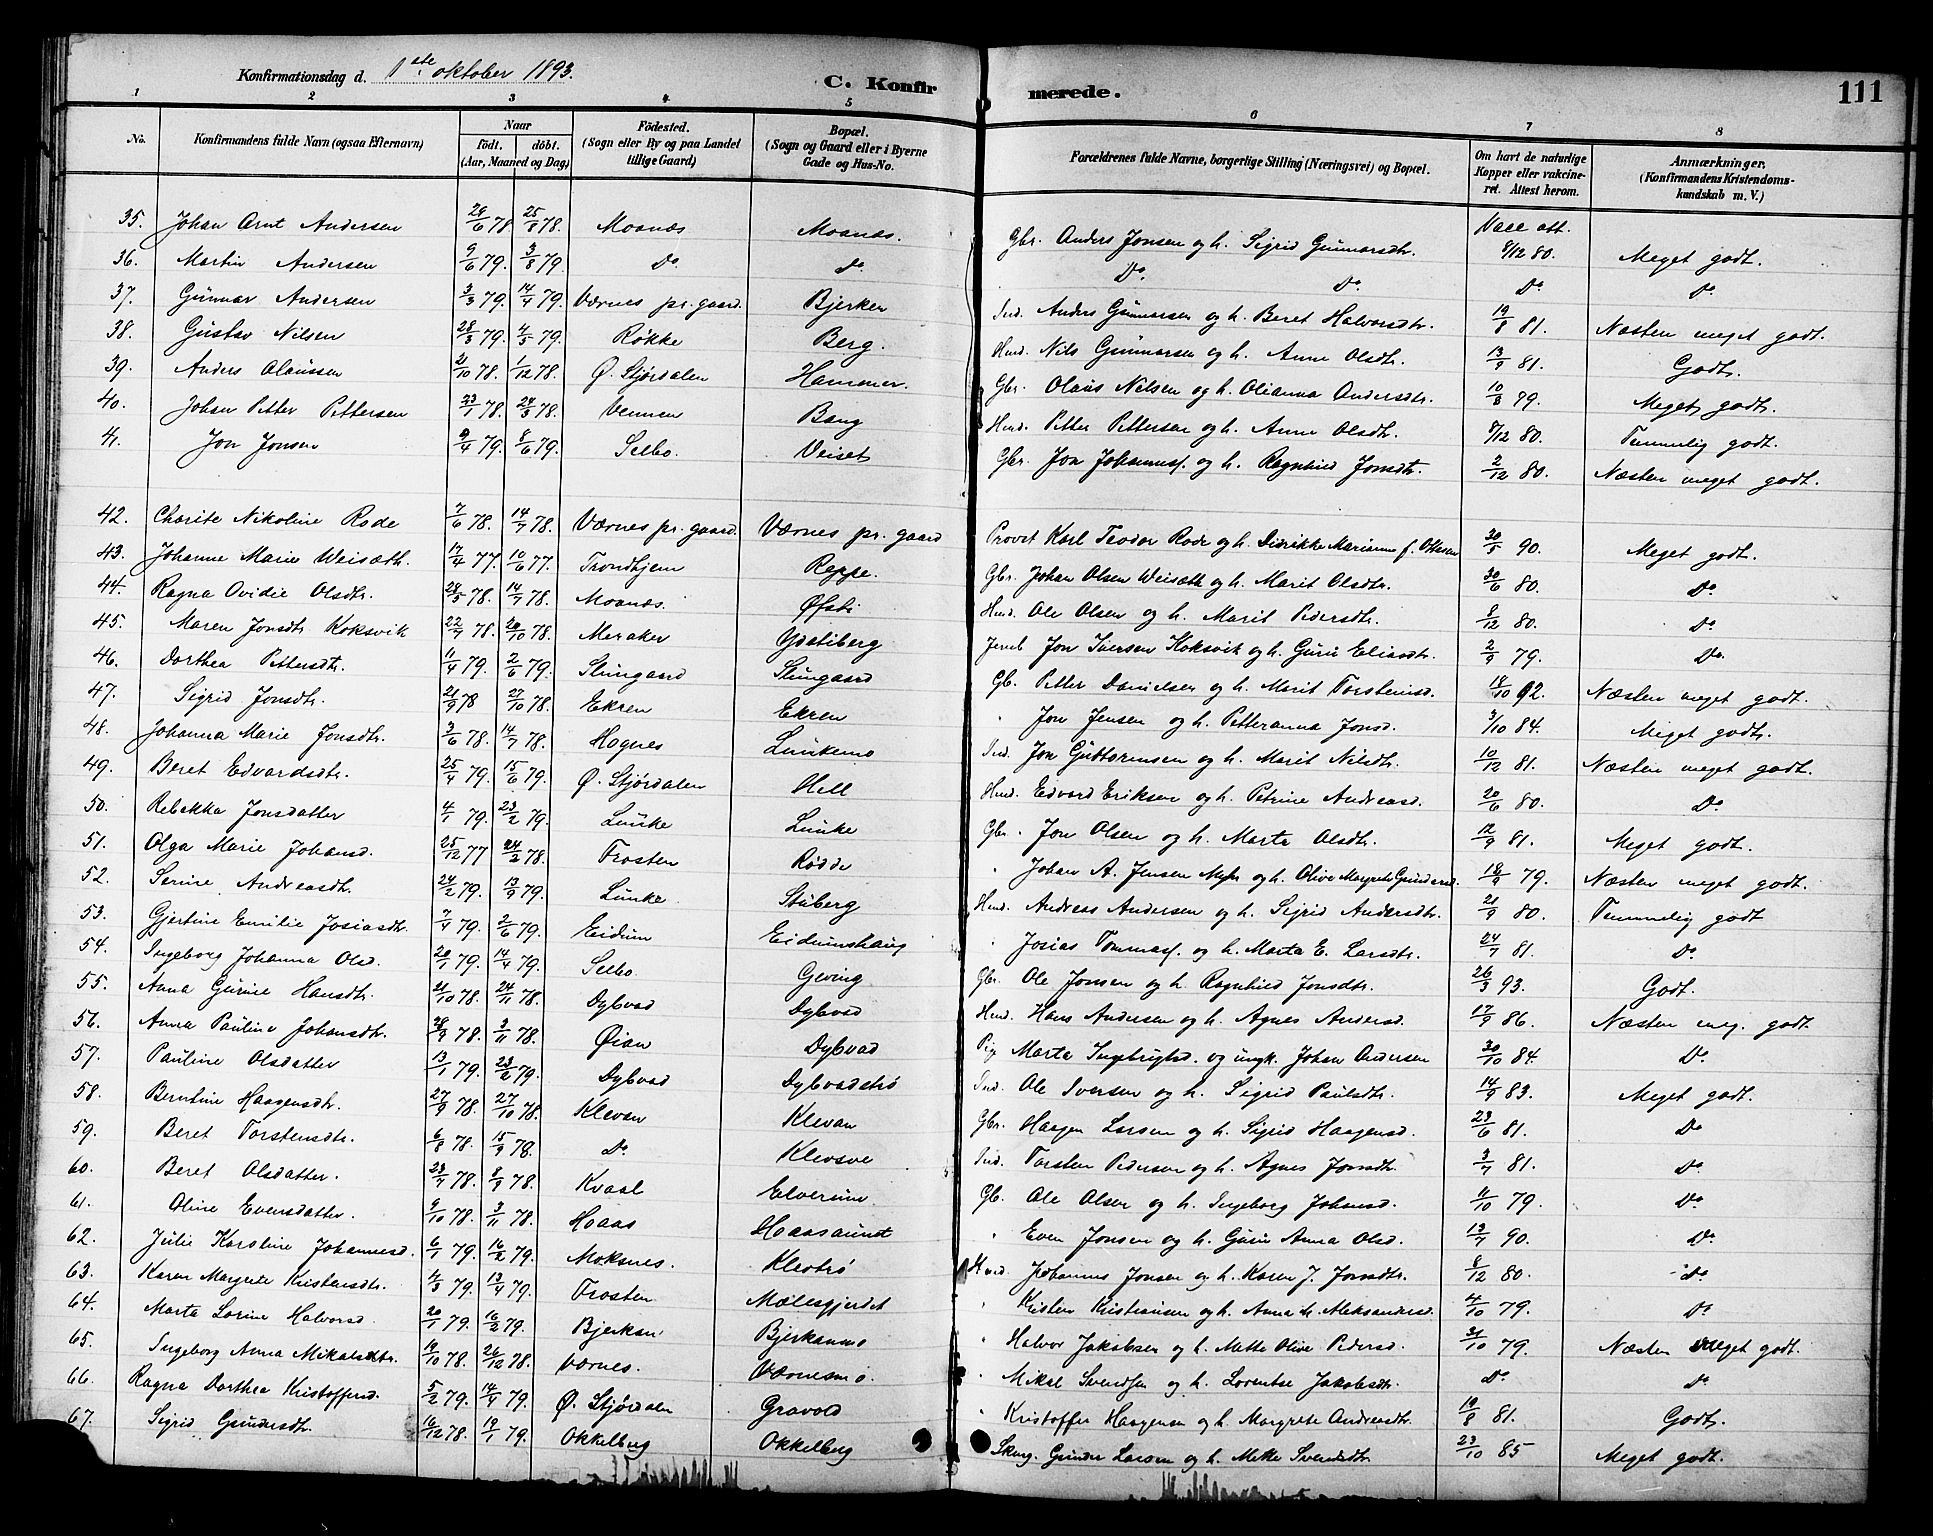 Konfirmationsdag d. 1ste oktober 1893. C. Konfirmerede. 111
1 2 3 4 5 6 7 8
No. Konfirmandens fulde Navn (ogsaa Efternavn) Naar født. døbt. (Aar, Maaned og Dag) Fødested. (Sogn eller By og paa Landet tillige Gaard) Bopæl. (Sogn og Gaard eller i Byerne Gade og Hus-No. Forældrenes fulde Navne, borgerlige Stilling (Næringsvei) og Bopæl. Om havt de naturlige Kopper eller vakcineret. Attest herom. Anmærkninger. (Konfirmandens Kristendomskundskab m. V.)
35. Johan Arnt Andersen 24/6 78 25/8 78. Moanæs Moanæs. Gbr. Anders Jonsen og h. Sigrid Gunnarsdtr. Vacc att. 8/12 80. Meget godt.
36. Martin Andersen 9/6 79. 3/8 79. Do Do Do Do Do Do
37. Gunnar Andersen 3/3 79. 14/4 79. Værnes pr. gaard. Bjerken Ind. Anders Gunnarsen og h. Beret Halvorsdtr. 19/8 81. Næsten meget godt.
38. Gustav Nilsen 28/3 79. 4/5 79. Røkke Berg. Hmd. Nils Gunnarsen og h. Anne Olsdtr. 13/9 81. Godt.
39. Anders Olaussen 21/10 78. 1/12 78. Ø. Stjørdalen Hammer. Gbr. Olaus Nilsen og h. Olianna Andersdtr. 10/8 79. Meget godt.
40. Johan Petter Pettersen 23/1 78. 24/3 78. Vennen Bang Hmd. Petter Pettersen og h. Anne Olsdtr. 8/12 80. Temmelig godt.
41. Jon Jonsen 9/4 79. 8/6 79. Selbo. Veiset Gbr. Jon Johannesf. og h. Ragnhild Jonsdtr. 2/12 80. Næsten meget godt.
42. Charite Nikoline Rode 7/6 78. 14/7 78. Værnes pr. gaard. Værnes pr. gaard Provst Karl Teodor Rode og h. Didrikke Marianne f. Ottesen 30/5 90. Meget godt.
43. Johanne Marie Weisæth. 17/4 77. 10/6 77. Trondhjem Reppe. Gbr. Johan Olsen Weisæth og h. Marit Olsdtr. 30/6 80. Do
44. Ragna Ovidie Olsdtr. 24/5 78. 14/7 78. Moanæs. Øfsti Hmd. Ole Olsen og h. Marit Pedersdtr. 8/12 80. Do
45. Maren Jonsdtr. Koksvik 22/7 78. 20/10 78. Meraker Ydstiberg Jernb Jon Iversen Koksvik og h. Guru Eliasdtr. 2/9 79. Do
46. Dorthea Pettersdtr. 11/4 79. 2/6 79. Slungaard Slungaard Gb. Petter Danielsen og h. Marit Torstensd. 18/10 92. Næsten meget godt.
47. Sigrid Jonsdtr. 21/9 78 27/10 78. Ekren Ekren " Jon Jensen og h. Petteranna Jonsd. 3/10 84. Meget godt.
48. Johanna Marie Jonsdtr. 3/6 78. 14/7 78. Hognes Lunkemo Ind. Jon Guttormsen og h. Marit Nilsdtr. 10/12 81. Næsten meget godt.
49. Beret Edvardsdtr. 25/4 79. 15/6 79. Ø. Stjørdalen Hell Hmd. Edvard Eriksen og h. Petrine Andreasd. 20/6 80. Do
50. Rebekka Jonsdatter 4/1 79. 23/2 79. Lunke Lunke Gbr. Jon Olsen og h. Marta Olsdtr. 12/9 81. Meget godt.
51. Olga Marie Johansd. 25/12 77 24/2 78. Frosten Rødde " Johan A. Jensen Myhr og h. Olive Margrete Gundersd. 18/9 79. Næsten meget godt.
52. Serine Andreasdtr. 24/2 79. 13/9 79. Lunke Stuberg Hmd. Andreas Andersen og h. Sigrid Andersdtr. 21/9 80. Temmelig godt
53. Gjertine Emilie Josiasdtr. 7/4 79. 2/6 79. Eidum Eidumshaug " Josias Tommasf. og h. Marta E. Larsdtr. 24/7 81. Do
54. Ingeborg Johanna Olsd. 20/1 79. 14/4 79. Selbo. Geving Gbr. Ole Jonsen og h. Ragnhild Jonsdtr. 26/3 93. Godt.
55. Anna Gurine Hansdtr. 21/10 78. 24/11 78. Dybvad Dybvad Hmd. Hans Andersen og h. Agnes Andersd. 17/9 86. Næsten meg. godt
56. Anna Pauline Johansdtr. 28/9 78. 3/11 78. Øian Dybvad Pig Marta Ingebrigtsd. og ungk. Johan Andersen 30/10 84. Do
57. Pauline Olsdatter 13/1 79. 23/2 79. Dybvad Dybvadstrø Ind. Ole Iversen og h. Sigrid Paulsdtr. 14/9 83. Meget godt.
58. Berntine Haagensdtr. 27/9 78. 27/10 78. Klevan Klevan Gbr. Haagen Larsen og h. Sigrid Haagensd. 23/6 81. Do
59. Beret Torstensdtr. 6/8 78. 15/9 78. Do Klevsve Ind. Torsten Pedersen og h. Agnes Jonsdtr. 3/7 81. Do
60. Beret Olsdatter. 23/7 78. 8/9 78. Kvaal Elverum Gb. Ole Olsen og h. Ingeborg Johansd. 11/10 79. Do
61. Oline Evensdatter. 9/10 78. 3/11 78. Hoaas Hoaasaunet " Even Jonsen og h. Guru Anna Olsd. 13/7 90. Do
62. Julie Karoline Johannesd. 6/1 79. 16/2 79. Moksnes. Klestrø Hmd. Johannes Jonsen og h. Karen J. Jonsdtr. 8/12 80. Do
63. Karen Margrete Kristensdtr. 4/3 79. 13/4 79. Frosten Mælesgjerdet " Kristen Kristiansen og h. Anna M. Aleksandersd. 4/10 79. Do
64. Marta Lorine Halvorsd. 20/1 79. 16/2 79. Bjerkan Bjerkanmo " Halvor Jakobsen og h. Mette Olive Pedersd. 31/10 79. Næsten meget godt.
65. Ingeborg Anna Mikalsdtr. 19/10 78. 26/12 78. Værnes. Værnesmo. " Mikal Svendsen og h. Lorentse Jakobsdtr. Do Do
66. Ragna Dorthea Kristoffersd. 5/2 79. 14/4 79. Ø. Stjørdalen Gravold " Kristoffer Haagensen og h. Margrete Andreasdtr. 19/8 81. Godt.
67. Sigrid Gundersdtr. 16/12 78. 19/1 79. Okkelberg Okkelberg Skrag. Gunder Larsen og h. Mette Svendsdtr. 23/10 85 Meget godt.